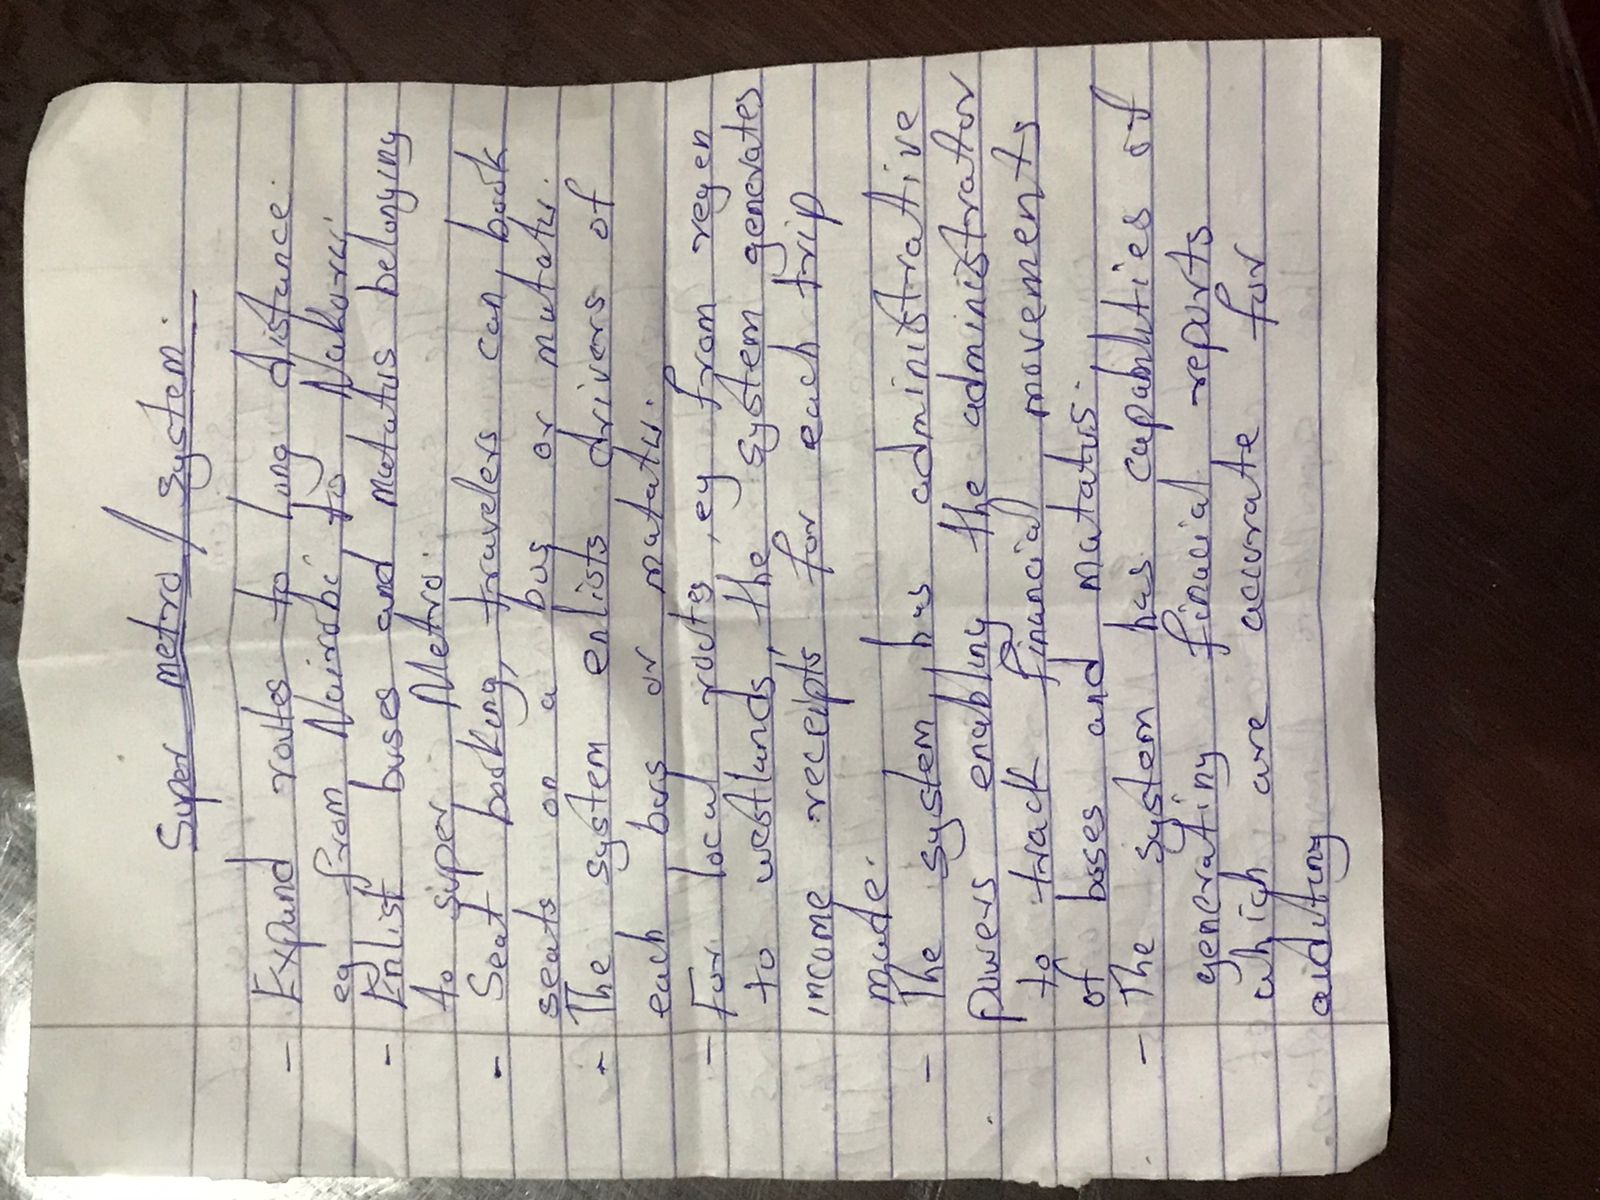 Super metro / system.
- Expand routes to long distance.
eg from Nairobi to Nakuru.
- Enlist buses and matatus belonging
to super Metro.
- Seat booking, travelers can book
seats on a bus or matatu.
- The system enlists drivers of
each bus or matatu.
- For local routes, eg from regen
to westlands, the system generates
income receipts for each trip
made.
- The system has administrative
powers enabling the administrator
to track financial movements
of buses and matatus.
- The system has capabilities of
generating financial reports
which are accurate for
auditing